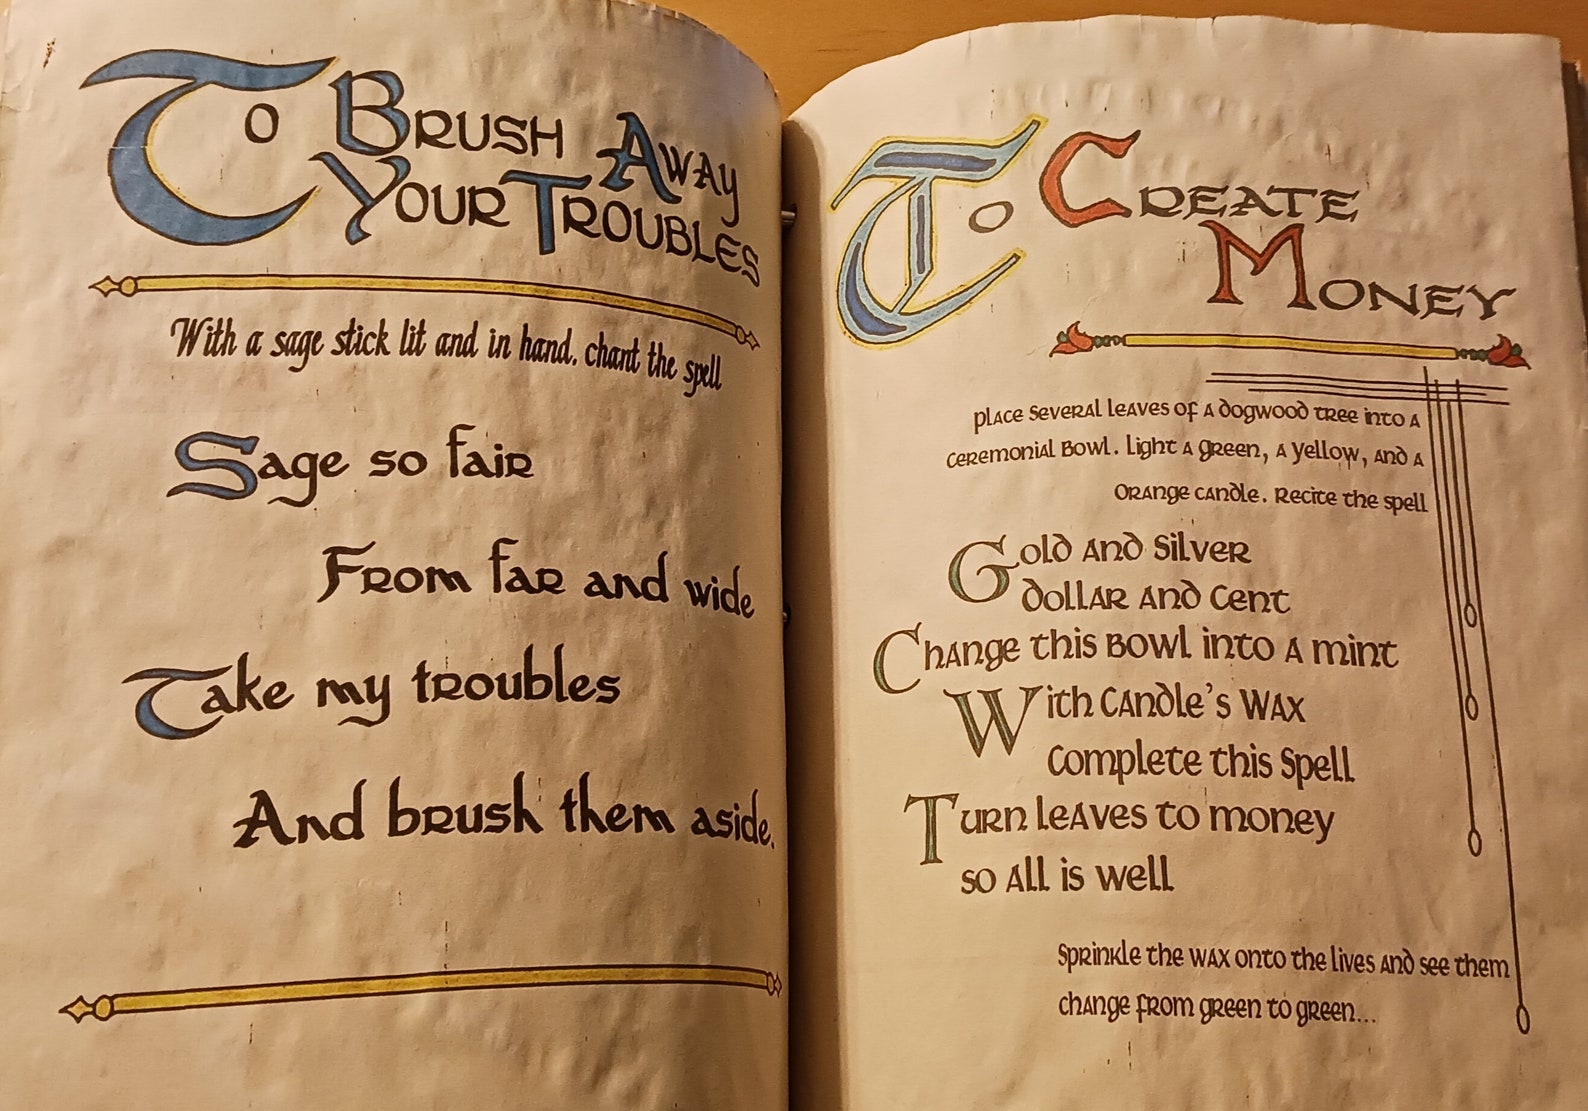 To Brush Away
Your Troubles
With a sage stick lit and in hand. chant the spell
Sage so fair
From far and wide
Take my troubles
And brush them aside.
To Create
Money
Place several leaves of a dogwood tree into a
ceremonial bowl. Light a green, a yellow, and a
orange candle. Recite the spell
Gold and Silver
dollar and cent
Change this bowl into a mint
With candle's wax
Complete this spell
Turn leaves to money
so all is well
Sprinkle the wax onto the lives and see them
change from green to green...